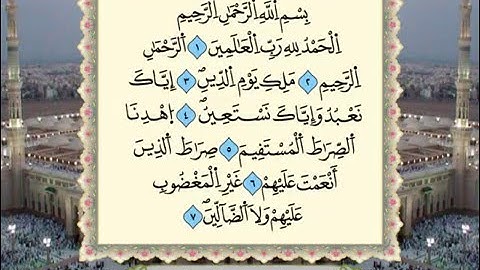 بِسْمِ اِ۬للَّهِ اِ۬لرَّحْمَٰنِ اِ۬لرَّحِيمِ
اِ۬لْحَمْدُ لِلهِ رَبِّ اِ۬لْعَٰلَمِينَ ١ اَ۬لرَّحْمَٰنِ
اِ۬لرَّحِيمِ ٢ مَلِكِ يَوْمِ اِ۬لدِّينِ ٣ إِيَّاكَ
نَعْبُدُ وَإِيَّاكَ نَسْتَعِينُ ٤ اِ۪هْدِنَا
اَ۬لصِّرَٰطَ اَ۬لْمُسْتَقِيمَ ٥ صِرَٰطَ اَ۬لذِينَ
أَنْعَمْتَ عَلَيْهِمْ ٦ غَيْرِ اِ۬لْمَغْضُوبِ
عَلَيْهِمْ وَلَا اَ۬لضَّآلِّينَ ٧